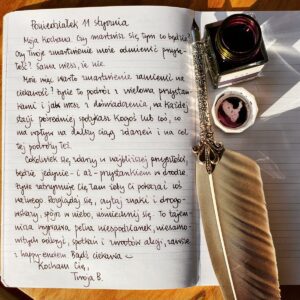 Poniedziałek 11 stycznia
Moja Kochana Czy martwisz się tym co będzie?
Czy Twoje zmartwienie może odmienić przyszłość?
Sama wiesz, że nie.
Może więc warto zmartwienie zamienić na
ciekawość? Życie to podróż z wieloma przystankami
i jak wiesz z doświadczenia, na każdej
stacji pośredniej spotykasz Kogoś lub coś, co
ma wpływ na dalszy ciąg zdarzeń i na cel
tej podróży też.
Cokolwiek się zdarzy w najbliższej przyszłości,
będzie jedynie - i aż - przystankiem w drodze
Życie zatrzymuje Cię tam żeby Ci pokazać coś
ważnego. Rozglądaj się, czytaj znaki i drogowskazy,
spójrz w niebo, uśmiechnij się. To tajemnicza
wyprawa pełna niespodzianek, niesamowitych
odkryć, spotkań i zwrotów akcji, zawsze
z happy-endem. Bądź ciekawa
Kocham Cię,
Twoja B.